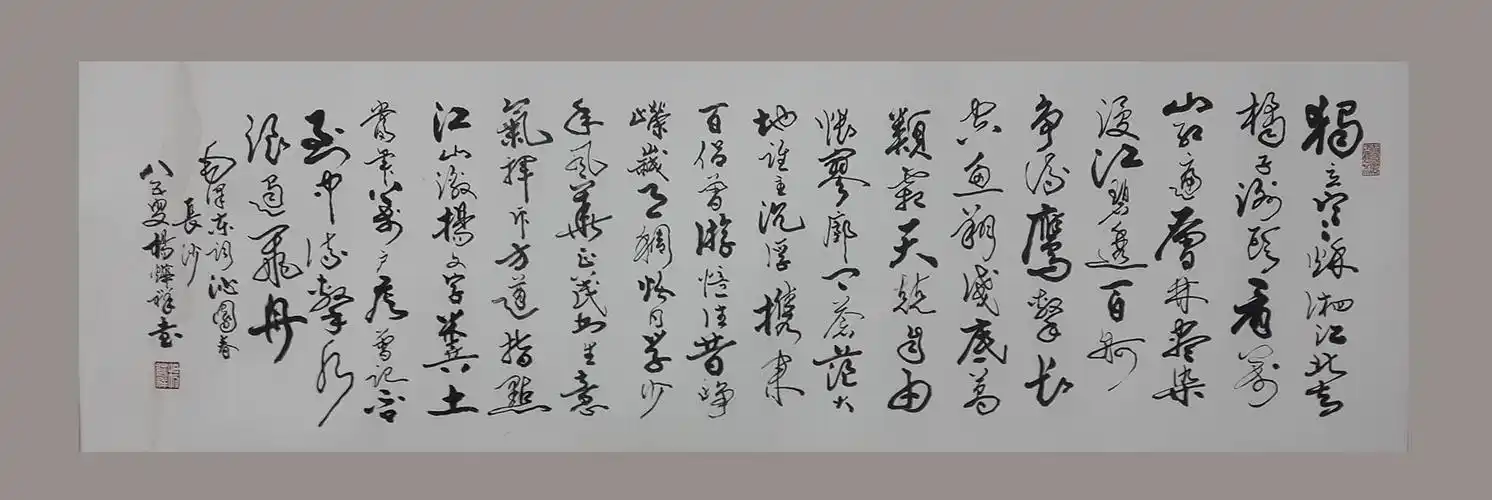 獨立寒秋湘江北去
橘子洲頭看萬
山紅遍層林盡染
漫江碧透百舸
爭流鷹擊長
空魚翔淺底萬
類霜天競自由
悵寥廓問蒼茫大
地誰主沉浮攜來
百侶曾游憶往昔崢
嶸歲月稠恰同學少
年風華正茂書生意
氣揮斥方遒指點
江山激揚文字糞土
當年萬戶侯曾記否
到中流擊水
浪遏飛舟
毛澤東詞沁園春
長沙
八五叟楊祥書